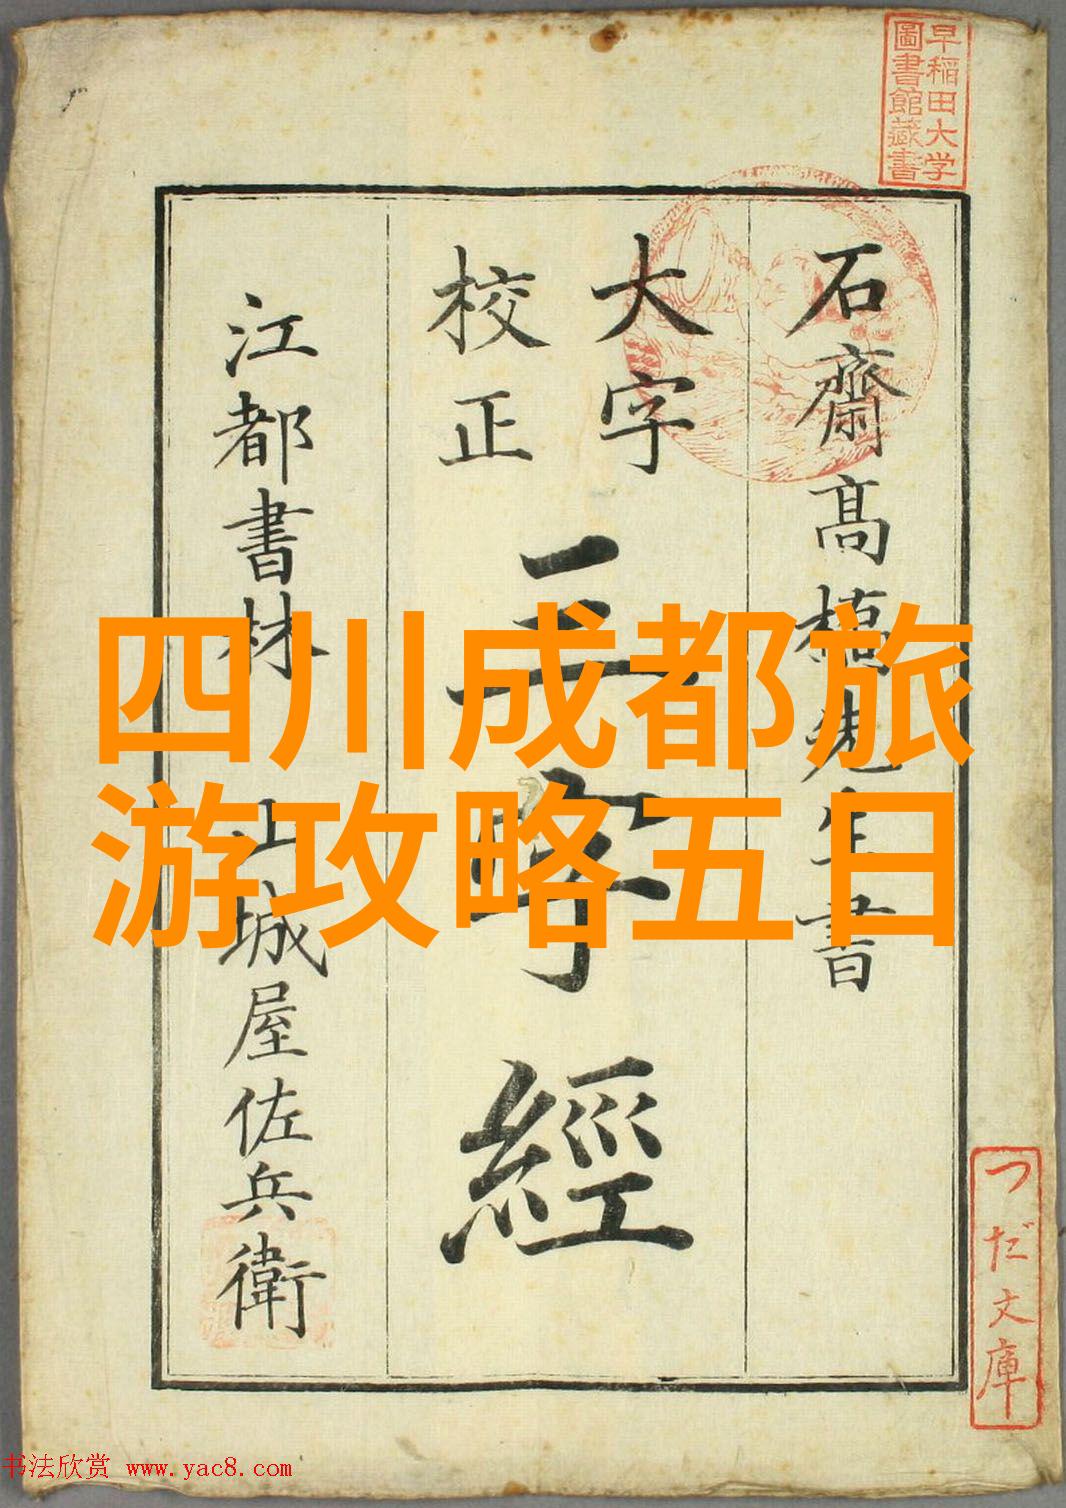 早稲田大学
圖書館藏書
石齋高橋先生書
大字
校正
三字經
江都書林 山城屋佐兵衛
四川成都旅
游攻略五日
つだ文庫
书法欣赏 www.yac8.com